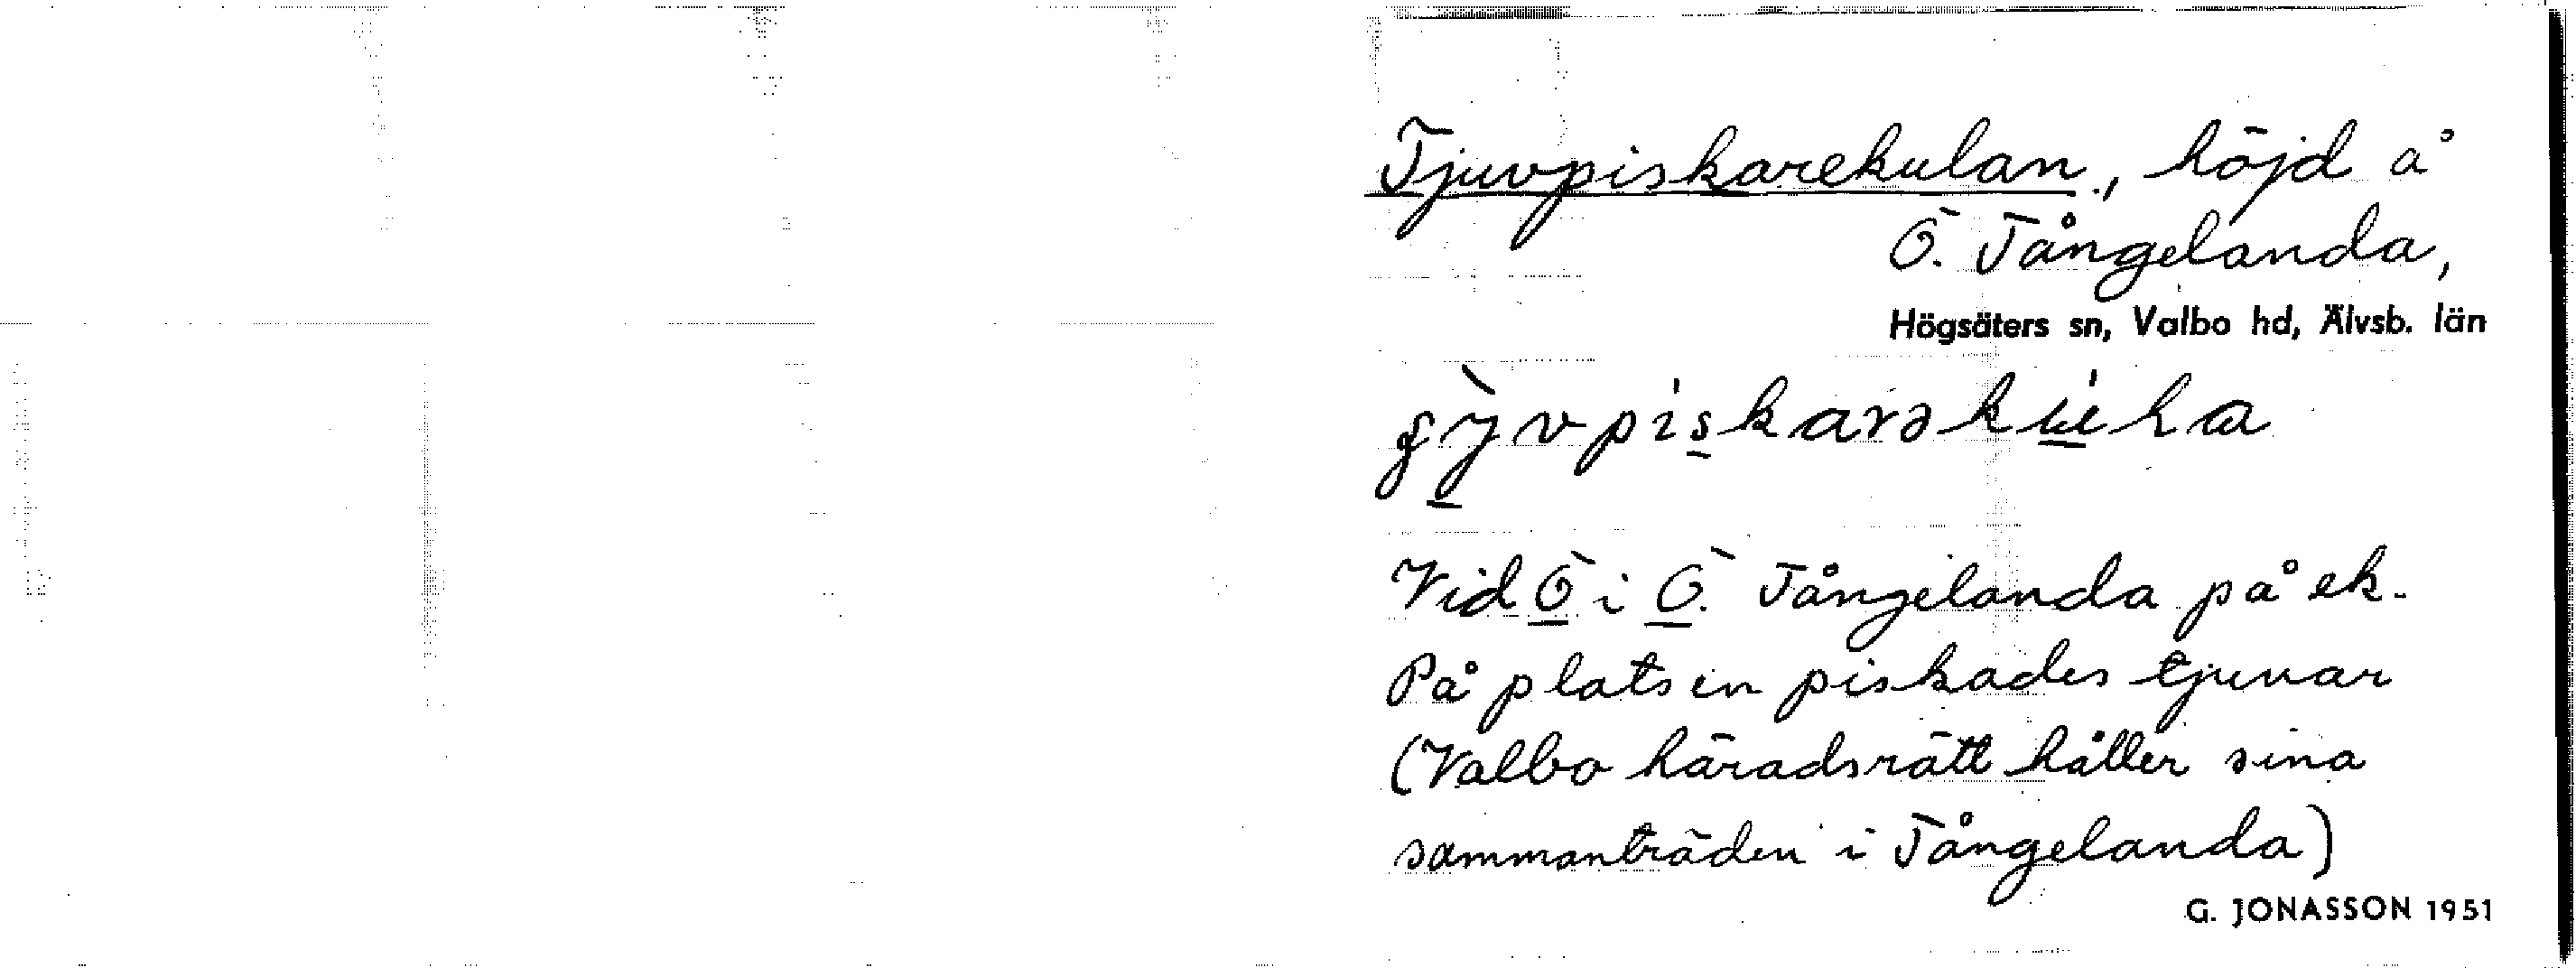 Tjuvpiskarekulan, höjd å
Ö. Tångelanda,
Högsäters sn, Valbo hd, Älvsb. län
Vid Ö i Ö. Tångelanda på ek.
På platsen piskades tjuvar
(Valbo häradsrätt håller sina
sammanträden i Tångelanda)
G. JONASSON 1951